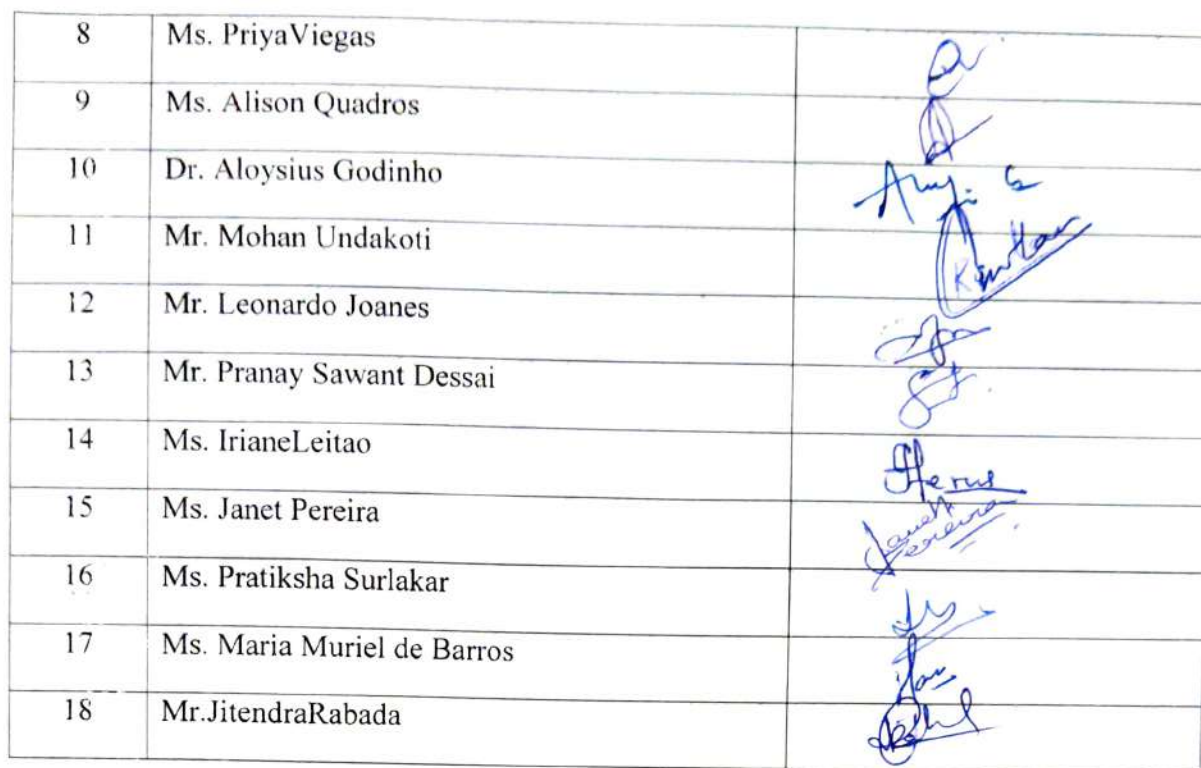 8 Ms. PriyaViegas
9 Ms. Alison Quadros
10 Dr. Aloysius Godinho
11 Mr. Mohan Undakoti
12 Mr. Leonardo Joanes
13 Mr. Pranay Sawant Dessai
14 Ms. IrianeLeitao
15 Ms. Janet Pereira
16 Ms. Pratiksha Surlakar
17 Ms. Maria Muriel de Barros
18 Mr.JitendraRabada